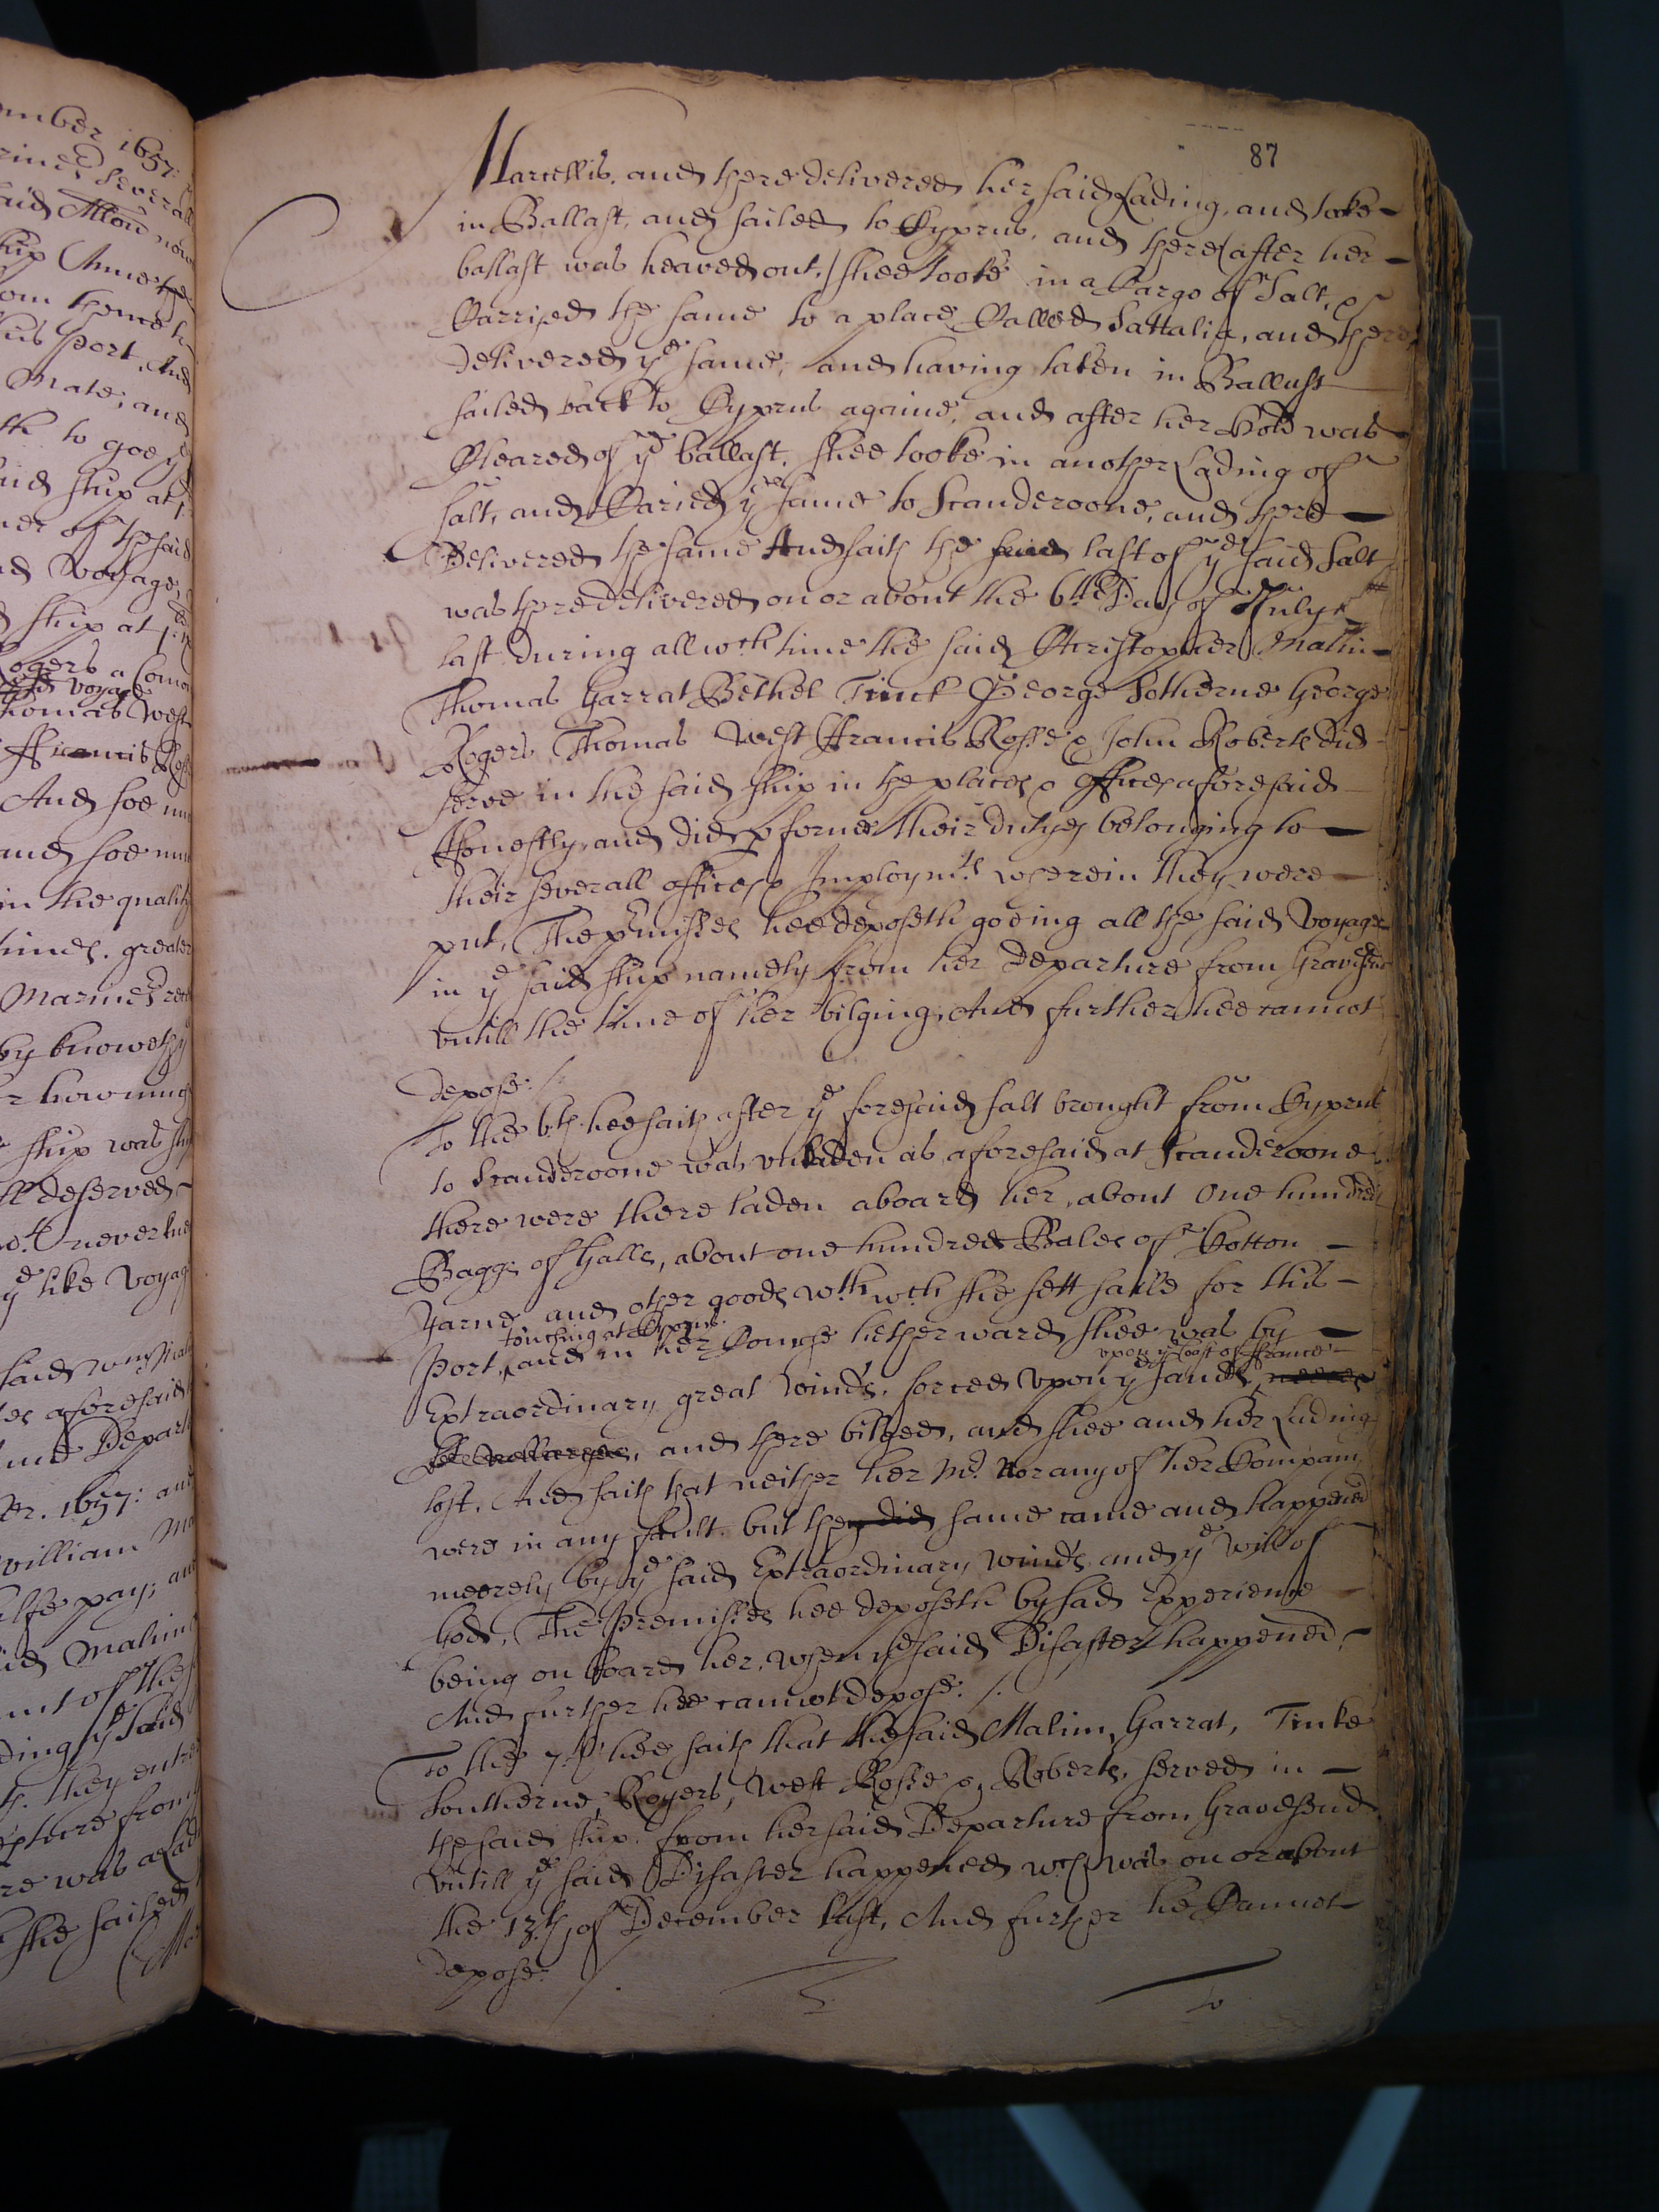 87
Marcellis, and there delivered her said Lading, and tooke
in Ballast, and sailed to Cyprus, and there (after her
ballast was heaved out,) shee tooke in a Cargo of Salt, &
Carryed the same to a place Called Sattalia, and there
delivered ye same, and having taken in Ballast
sailed back to Cyprus againe, and after her hold was
Cleared of ye ballast, shee tooke in another Lading of
salt, and Caried ye same to Scanderoone, and there
Delivered the same And saith the said last of ye said Salt
was there delivered on or about the 6th Day of July
last during all wch time the said Christopher Malim
Thomas Garrat Bethel Tinck George Sotherne George
Rogers Thomas West ffrancis Rosse & John Roberts did
serve in the said ship in the places & offices aforesaid
Honestly, and did pforme their dutyes belonging to
their severall offices & Imploymts wherein they were
put, The pmisses hee deposeth goeing all the said Voyage
in ye said ship namely from her Departure from Gravesend
untill the time of her bilging, And further hee cannot
depose:/.
To the 6th hee saith after ye foresaid salt brought from Cyprus
to Scanderoone was unladen as aforesaid at Scanderoone
there were there laden aboard her, about One hundred
Baggs of Galls, about one hundred Bales of Cotton
Yarne and other goods wth wch she sett saile for this
touching at Cyprus
Port, and in her Course hether ward shee was by
upon ye Coast of ffrance
Extraordinary great winds, forced upon ye sands,
and there bilged, and shee and her Lading
lost, And saith that neither her Mr. Nor any of her Company
were in any fault, but they did same came and happened
meerely by ye said Extraordinary winds and ye will of
God, The Premisses hee deposeth by sad Experience
being on board her, when ye said Disaster happened,
And further hee cannot depose:/.
To the 7th hee saith that the said Malim, Garrat, Tinke
Southerne, Rogers, West Rosse &, Roberts, served in
the said ship, from her said Departure from Gravesend
Untill ye said Disaster happened wch was on or about
the 13th of December last, And further he Cannot
depose:/.
To